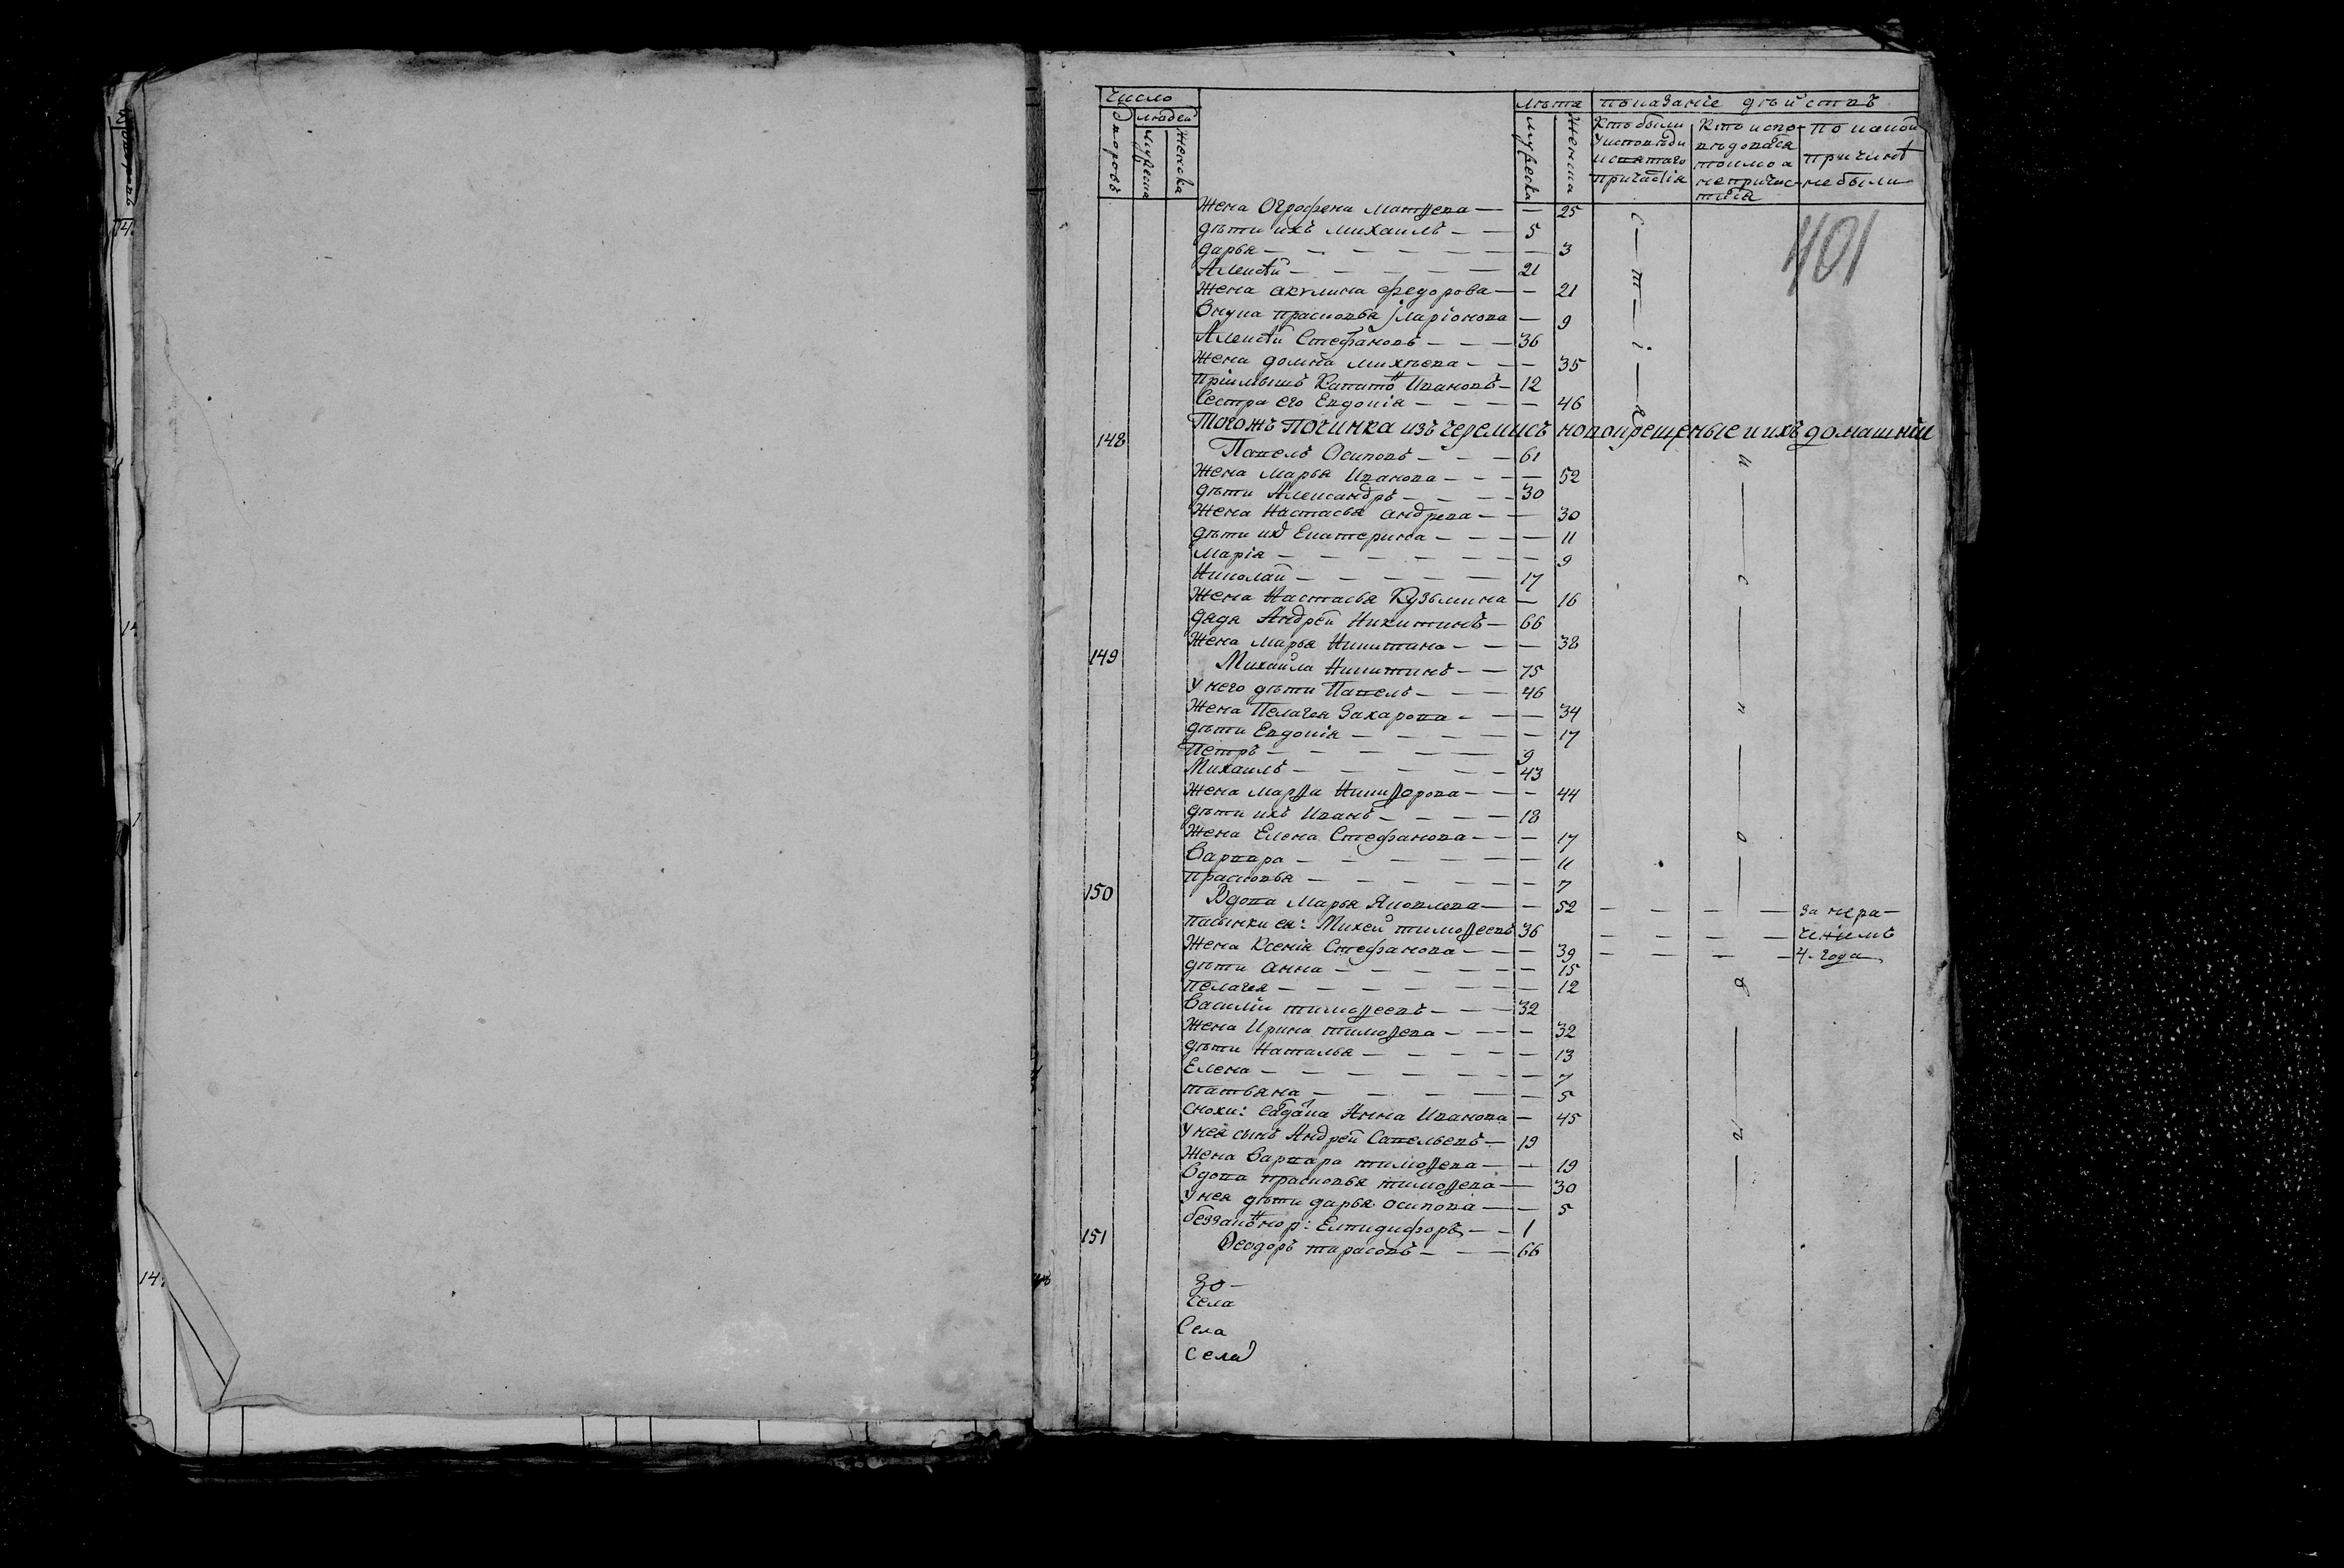 число
людей
дворовъ
мужеска
женска
лѣта
показаніе дѣйствъ
мужеска
женска
Кто были у исповѣди и святаго причастія
Кто исповѣдовался токмо а не причастился
По какой причинѣ не были
401
жена Огрофена Матѳева — — 25
дѣти ихъ Михаилъ — — 5
Дарья — — — — — — 3
Алексѣй — — — — — 21
жена Акулина Федорова — — 21
внука Прасковья Іларіонова — 9
Алексѣй Стефановъ — — — 36
жена Домна Михѣева — — — 35
пріимышъ Капитонъ Ивановъ — 12
сестра его Евдокія — — — — 46
Тогожъ Починка изъ черемисъ новокрещеные и ихъ домашніи
148 Павелъ Осиповъ — — — 61
жена Марья Иванова — — — — 52
дѣти Александръ — — — — 30
жена Настасья Андрева — — 30
дѣти ихъ Екатерина — — — — 11
Марія — — — — — — — 9
Николай — — — — — 17
жена Настасья Кузьмина — 16
дядя Андрей Никитинъ — 66
жена Марья Никитина — — — 38
149 Михайла Никитинъ — — 75
у него дѣти Павелъ — — — 46
жена Пелагея Захарова — — — 34
дѣти Евдокія — — — — — 17
Петръ — — — — — 9
Михаилъ — — — — — 43
жена Марѳа Никиѳорова — — — 44
дѣти ихъ Иванъ — — — — 18
жена Елена Стефанова — — — 17
Варвара — — — — — — 11
Прасковья — — — — — — 7
150 Вдова Марья Яковлева — — 52 — — — — за нера-
пасынки ея: Михей Тимоѳеевъ 36 — — — — ченіемъ
жена Ксенія Стефанова — — — 39 — — — — 4. года
дѣти Анна — — — — — — 15
Пелагея — — — — — — — 12
Василій Тимоѳеевъ — — — 32
жена Ирина Тимоѳева — — — — 32
дѣти Наталья — — — — — 13
Елена — — — — — — — 7
Татьяна — — — — — — 5
снохи: Анна Иванова — 45
у нея сынъ Андрей Савельевъ — 19
жена Варвара Тимоѳева — — 19
вдова Прасковья Тимоѳева — — 30
у нея дѣти Дарья Осипова — — 5
Елпидифоръ — — 1
151 Ѳеодоръ Тарасовъ — — — 66
30 —
Села
Села
Села